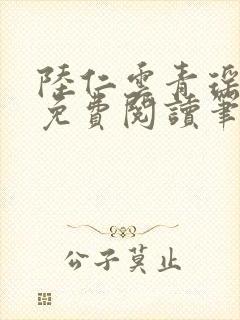 陸仁雲青瑶
免費閱讀筆
公子莫止